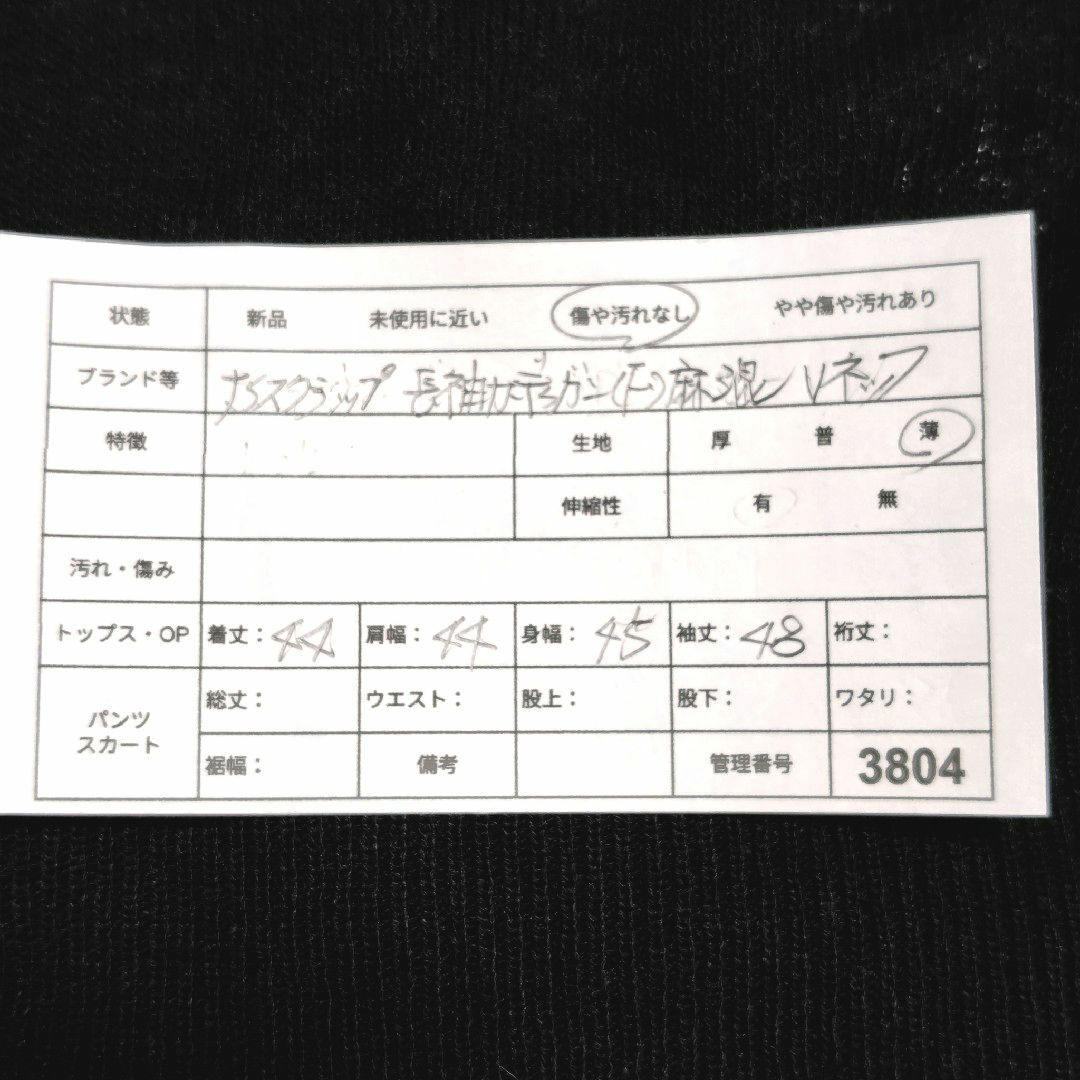 状態 新品 未使用に近い 傷や汚れなし やや傷や汚れあり
ブランド等 スクラップ 長袖カーディガン(F)麻混 Vネック
特徴 生地 厚 普 薄
伸縮性 有 無
汚れ・傷み
トップス・OP 着丈:44 肩幅:44 身幅:45 袖丈:48 裄丈:
パンツ 総丈: ウエスト: 股上: 股下: ワタリ:
スカート
裾幅: 備考 管理番号 3804